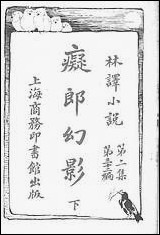 林譯小說
第二集
第三十編
癡郎幻影
下
上海商務印書館出版